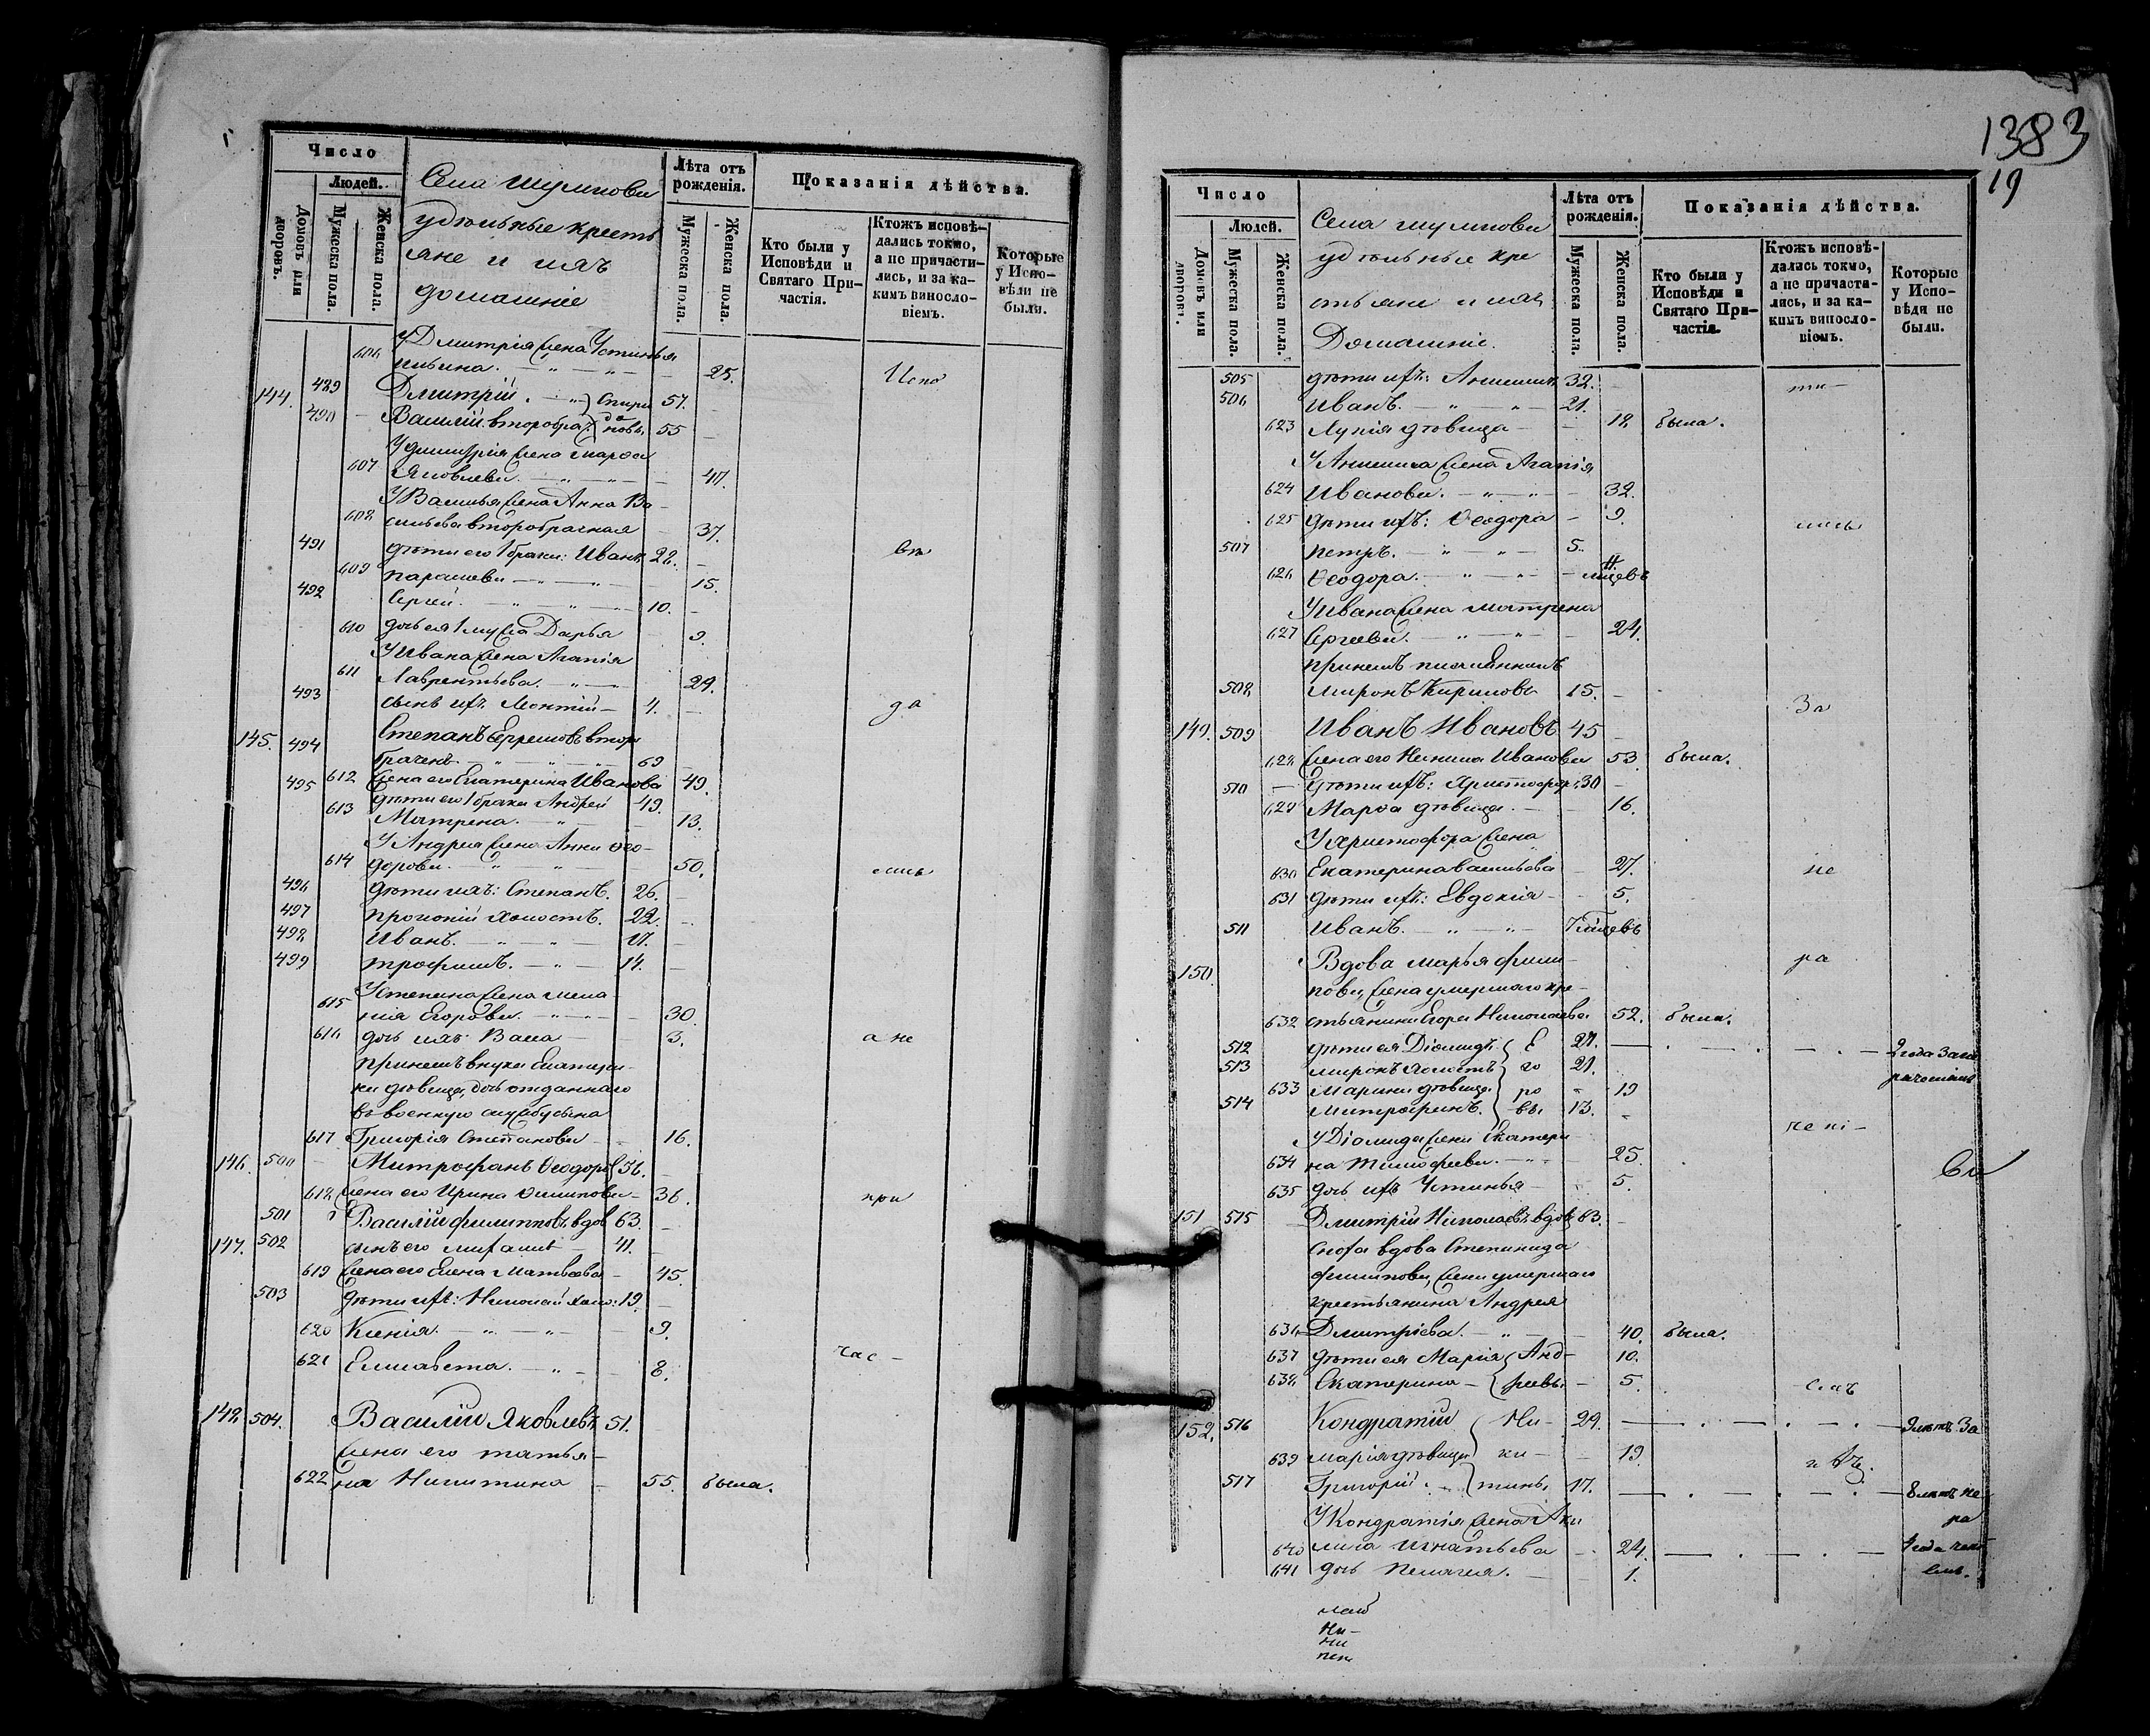 Число
Людей.
Домовъ или дворовъ.
Мужеска пола.
Женска пола.
Села Шумкова
удѣльные кресть
яне и ихъ
домашніе
Лѣта отъ рожденія.
Мужеска пола.
Женска пола.
Показанія дѣйства.
Кто были у Исповѣди и Святаго Причастія.
Ктожъ исповѣ-
дались токмо,
а не причасти-
лись, и за ка-
кимъ винословіемъ.
Которые у Испо-
вѣди не были.
У Дмитрія жена Устинья
606 Ильина. 25. Испо
144. 489 Дмитрій Спири 57.
490 Василій второбра. доновы 55
У Димитрія жена Марѳа
607 Яковлева 47.
У Василья жена Анна Ва-
608 сильева второбрачная 37.
491 дѣти его 1 брака: Иванъ 28. вѣ
609 Парасковья 15.
492 Сергей. 10.
610 дочь ея 1 мужа Дарья 9.
У Ивана жена Агапія
611 Лаврентьева. 29.
493 сынъ ихъ 4. да
145. 494 Степанъ втор
браченъ 69
612 жена его Екатерина Иванова 49.
495 дѣти его 1 брака Андрей 49.
613 Матрена 13.
У Андрея жена Анна Ѳео-
614 дорова. 50. лись
496 дѣти ихъ: Степанъ. 26.
497 Прокопій холостъ. 22.
498 Иванъ. 17.
499 Трофимъ. 14.
У Степана жена Мела
615 нія Егорова. 30.
616 дочь ихъ Васса 3. а не
При немъ внука Екатери-
на дѣвица, дочь отданнаго
въ военную службу сына
617 Григорія Степанова 16.
146. 500 Митрофанъ Ѳеодоро 56.
618 жена его Ирина Филипова 36. при
501 Василій Филипповъ вдов 63.
147. 502 сынъ его Михаилъ 41.
619 жена его Елена Матвеева 45.
503 дѣти ихъ: Николай холо: 19.
620 Ксенія. 9.
621 Елисавета. 8. час-
148 504. Василій Яковлевъ 51.
жена его Татья-
622 на Никитина 55. была.
1383
19
Число
Людей.
Домовъ или дворовъ.
Мужеска пола.
Женска пола.
Села Шумкова
удѣльные кре
стьяне и ихъ
Домашніе.
Лѣта отъ рожденія.
Мужеска пола.
Женска пола.
Показанія дѣйства.
Кто были у Исповѣди и Святаго Причастія.
Ктожъ исповѣ-
дались токмо,
а не причасти-
лись, и за ка-
кимъ винословіемъ.
Которые у Испо-
вѣди не были.
505 дѣти ихъ: 32. ти-
506 Иванъ. 21.
623 Лукія дѣвица 18 была.
У жена Агапія
624 Иванова. 32.
625 дѣти ихъ: Ѳеодора 9. лись
507 Петръ. 5.
626 Ѳеодора. мѣсцевъ
У Ивана жена Матрена
627 Сергеева. 24.
При немъ племянникъ
508 Миронъ Кириловъ 15. за
149. 509 Иванъ Ивановъ 45
628 жена его Ивановна 53. была.
510 дѣти ихъ: Христофор. 30
629 Марѳа дѣвица. 16.
У Христофора жена
630 Екатерина Васильева 27. не
631 дѣти ихъ: Евдокія 5.
511 Иванъ. 7 мѣсцевъ
150. Вдова Марья Фили- ра
пова, жена умершаго кре-
632 стьянина Егора Николаева 52. была.
512 дѣти ея Діомидъ Е 27. 2 года за не
513 Миронъ холостъ го 21. раченіемъ
633 Марина дѣвица ро 19
514 Митрофанъ. вы 13.
У Діомида жена Екатери чені-
634 на Тимофеева. 25.
635 дочь ихъ Устинья 5.
151 515 Дмитрій Николаевъ вдов 63.
Сноха вдова Степанида
Филипова, жена умершаго
крестьянина Андрея
636 Дмитріева. 40. была.
637 дѣти ея Марія Анд- 10.
638 Екатерина реевы 5. емъ
152. 516 Кондратій Ни- 29. за
639 Марія дѣвица ки- 19.
517 Григорій. тины 17. не
У Кондратія жена Аку ра
640 лина Игнатьева 24. года чені
641 дочь Пелагея. 1. емъ.